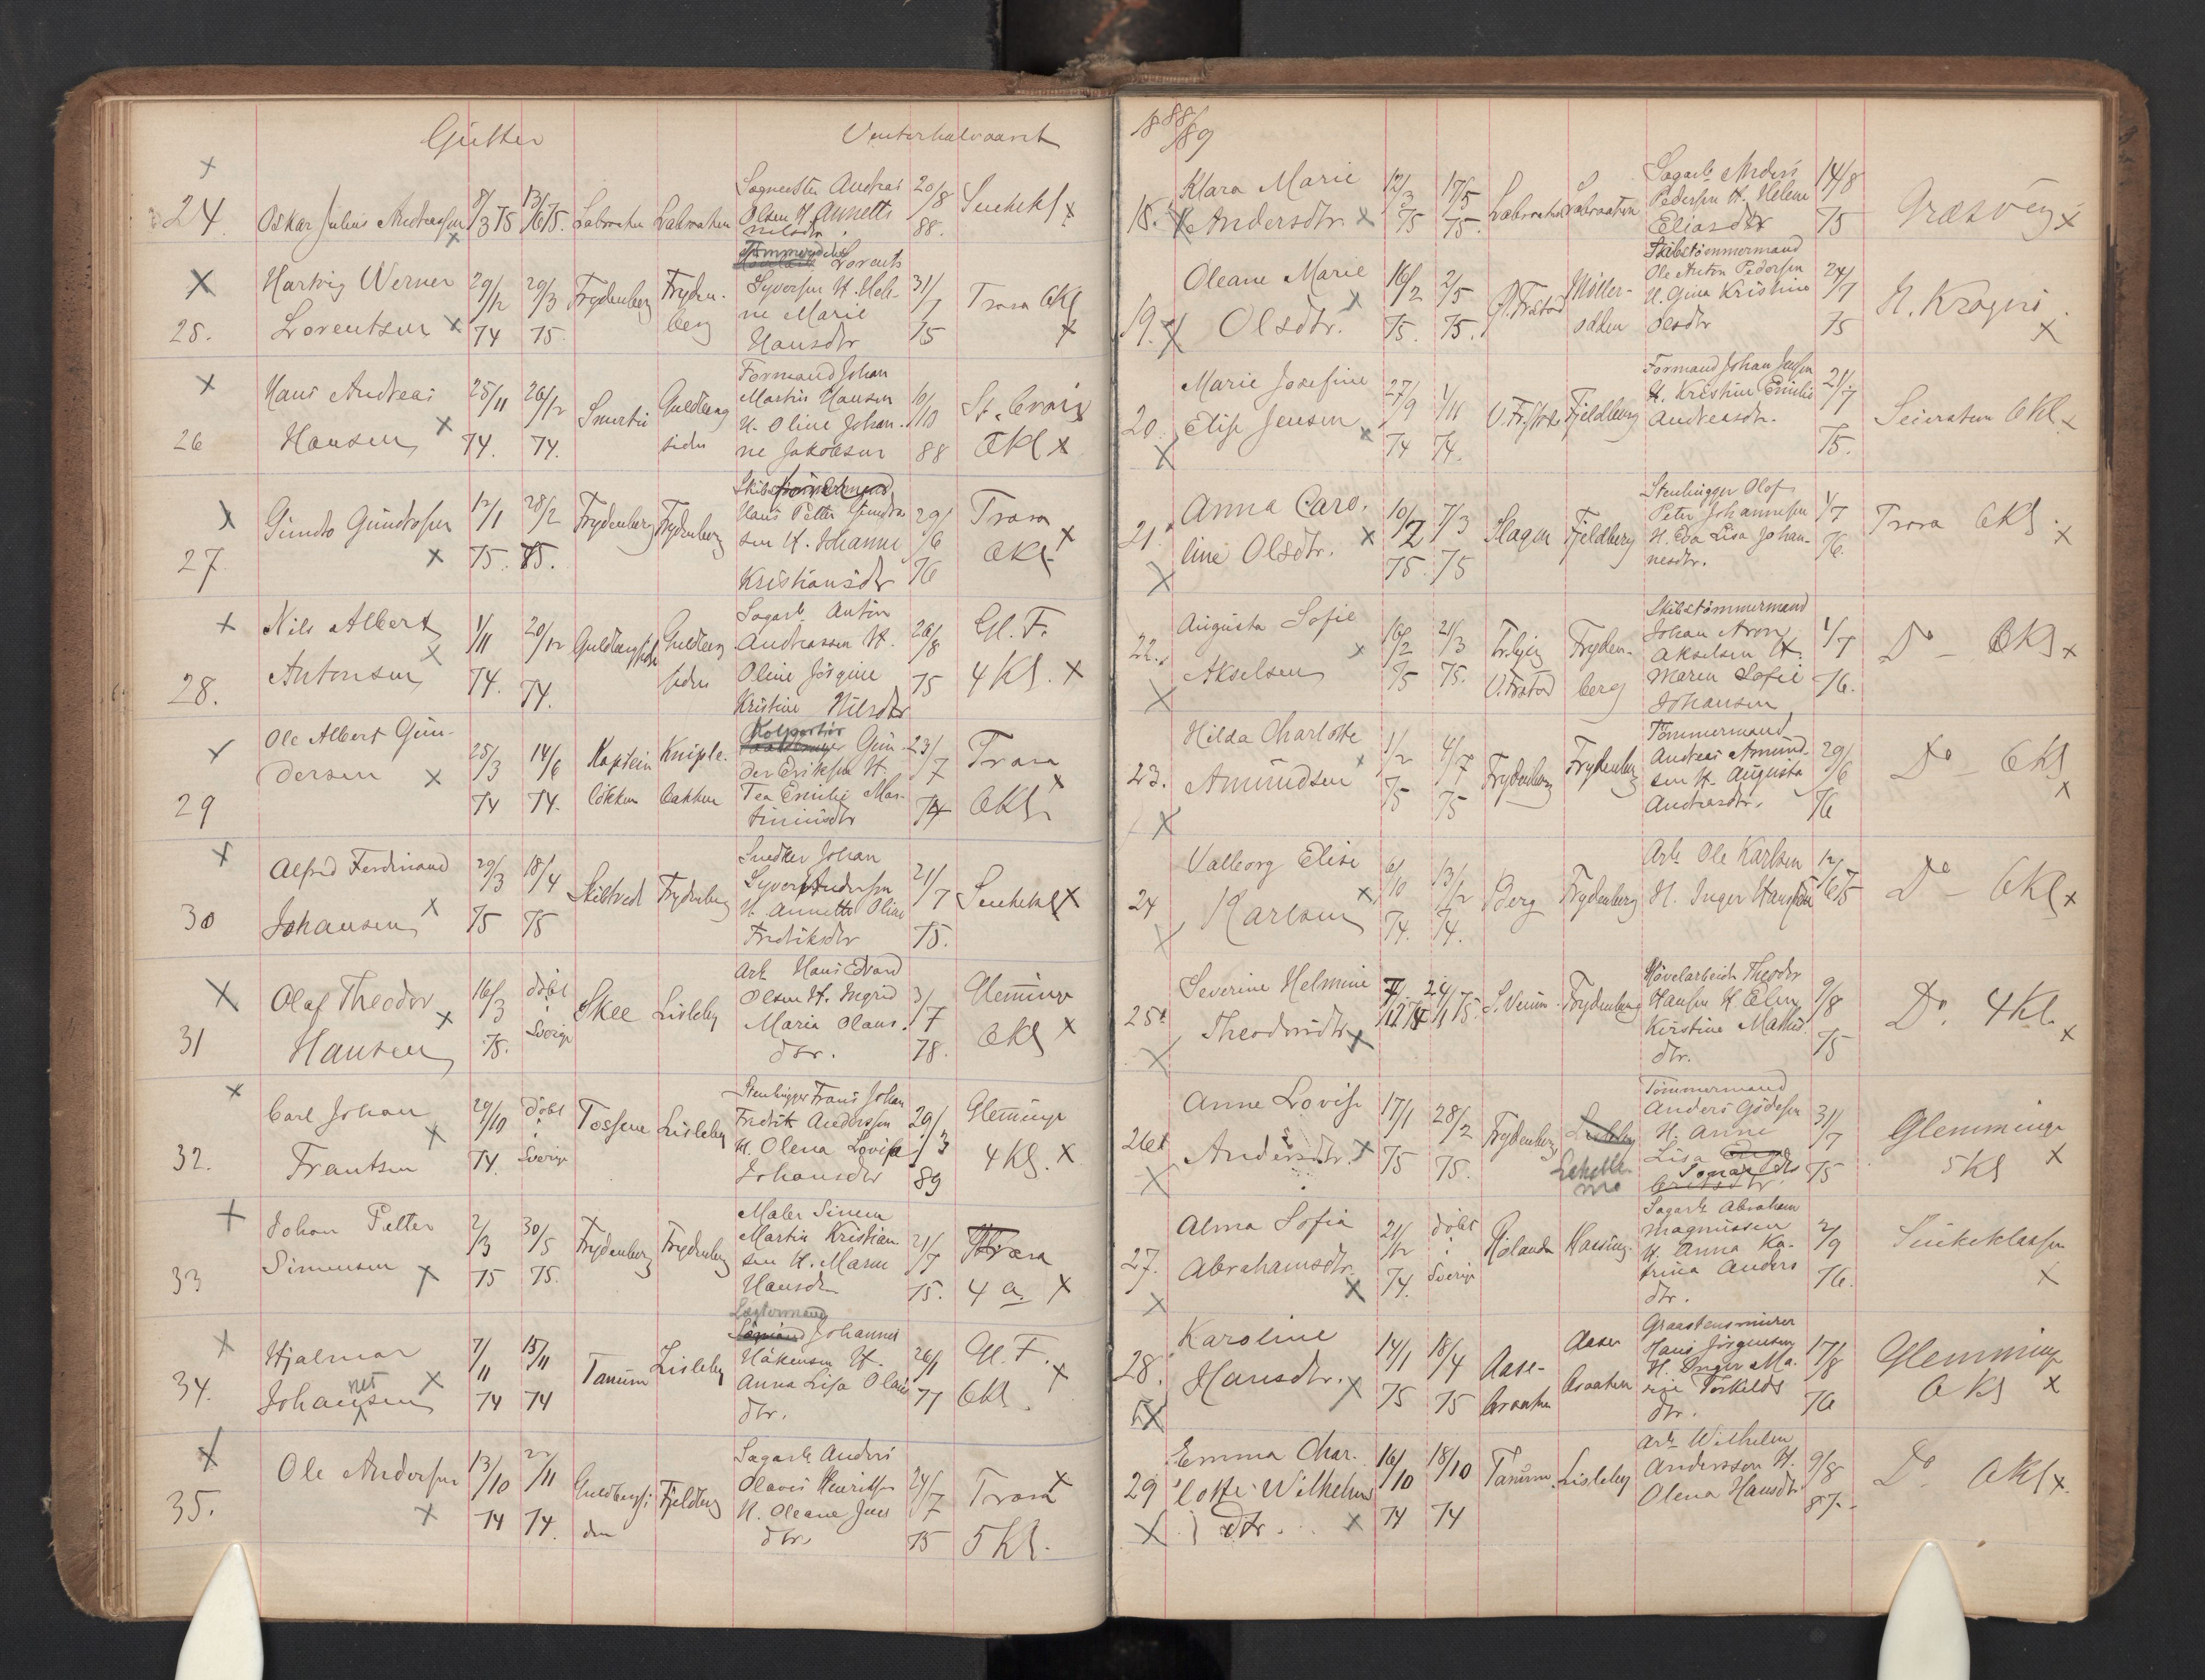 Gutter Vinterhalvaaret
24 Oskar Julius Andreassen 8/3 75 13/6 75. Labraaten Labraaten Sagmester Andreas Olsen H. Annette Nilsdtr. 20/8 88.
25. Hartvig Werner Lorentsen 29/12 74 29/3 75. Frydenberg Frydenberg Lorents Syversen H. Helene Marie Hansdtr 31/7 75 Trara 6Kl
26 Hans Andreas Hansen 25/11 74. 26/12 74. Guldbergsiden Formand Johan Martin Hansen H. Oline Johanne Jakobsen 10/10 88 St. Croix 6Kl
27. Gundro Gundrosen 12/1 75. 28/2 75. Frydenberg Frydenberg Hans Petter Gundrosen H. Johanne Kristiansdtr 29/6 76 Trara 6Kl
28. Nils Albert Antonsen 1/11 74. 20/12 74. Guldbergside Guldbergsiden Sagarb. Anton Andreassen H. Oline Jörgine Kristine Nilsdtr 26/8 75 Gl. F. 4 Kl.
29 Ole Albert Gundersen 25/3 74 14/6 74. Kaptein lökken Kniplebakken Kolportör Gunder Eriksen H. Tea Emilie Martiniusdtr 23/7 74 Trara 6Kl
30 Alfred Ferdinand Johansen 29/3 75 18/4 75 Skibtvedt Frydenberg Snedker Johan Syver Andersen H. Annette Oline Fredriksdtr 21/7 75.
31 Olaf Theodor Hansen 16/3 75. döbt i Sverige Skee Lisleby Arb. Hans Edvard Olsen H. Ingrid Maria Olausdtr. 3/7 78. Glemminge 6Kl
32. Carl Johan Frantsen 29/10 74. döbt i Sverige Tossene Lisleby Stenhugger Frans Johan Fredrik Anderssen H. Olena Lovisa Johansdtr 29/3 89 Glemminge 4 Kl.
33 Johan Petter Simensen 2/3 75 30/5 75. Frydenberg Frydenberg Maler Simen Martin Kristiansen H. Maren Hansdtr 21/7 75. Trara 4 a.
34. Hjalmar Johannesen 7/11 74 15/11 74 Tanum Lisleby Johannes Håkensen H. Anna Lisa Olausdtr. 26/1 77 Gl. F. 6Kl.
35. Ole Andersen 13/10 74 22/11 74. Guldbergsiden Fjeldberg Sagarb. Anders Olaves Henriksen H. Oleane Jensdtr. 24/7 75 Trara 5 Kl.
1888/89
18. Klara Marie Andersdtr. 12/3 75 17/5 75. Labraaten Labraaten Sagarb. Anders Pedersen H. Helene Eliasdtr 14/8 75 Græsvig
19. Oleane Marie Olsdtr. 16/2 75. 2/5 75. Ö. Frstad Möllerodden Skibstömmermand Ole Anton Pedersen H. Gina Kristine Olsdtr 24/7 75 N. Kragerö
20. Marie Josefine Elise Jensen 27/9 74 1/11 74. Fjeldberg Formand Johan Jensen H. Kristine Emilie Andreasdtr. 21/7 75. Seiersten 6Kl
21. Anna Caroline Olsdtr. 10/2 75. 7/3 75 Slagen Fjeldberg Stenhugger Olof Peter Johannesen H. Eva Lisa Johannesdtr. 1/7 76. Trara 6Kl.
22. Augusta Sofie Akselsen 16/2 75 21/3 75. V. Frstad Frydenberg Skibstömmermand Johan Aron Akselsen H. Maren Sofie Johansen 1/7 76. Do - 6Kl
23. Hilda Charlotte Amundsen 1/2 75 4/7 75 Frydenberg Frydenberg Tömmermand Andreas Amundsen H. Augusta Andreasdtr. 29/6 76 Do - 6Kl
24 Valborg Elise Karlsen 6/10 74. 13/12 74. Berg Frydenberg Arb. Ole Karlsen H. Inger Hansen 12/6 75 Do - 6Kl
25. Severine Helmine Theodorsdtr. 7/12 74 24/1 75. Frydenberg Hövelarbeider Theodor Hansen H. Elen Kirstine Mathisdtr. 9/8 75 Do. 4 Kl.
26. Anne Lovise Andersdtr. 17/1 75 28/2 75. Frydenberg Lisleby Tömmermand Anders H. Anne Lisa 31/7 75 Glemminge 5 Kl
27. Alma Sofia Abrahamsdtr. 21/12 74. döbt i Sverige Rolanda Sagarb. Abraham Magnussen H. Anna Katrina Andersdtr. 2/9 76. Sinkeklassen
28. Karoline Hansdtr. 14/1 75 18/4 75 Aasebraaten Aasebraaten Graastensmurer Hans Jörgensen H. Inger Marie Torkildsdtr. 17/8 76 Glemminge 6 Kl
29 Emma Charlotte Wilhelmsdtr. 16/10 74 18/10 74 Tanum. Lisleby Arb. Wilhelm Andersson H. Olena Hansdtr 9/8 87. Do. 6Kl